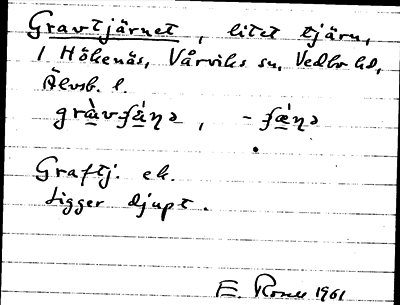 Gravtjärnet, litet tjärn,
i Hökenäs, Vårviks sn, Vedbo hd,
Älvsb. l.
gràvʃä́nə, -ʃǽnə
Graftj. ek.
Ligger djupt.
E. 1961